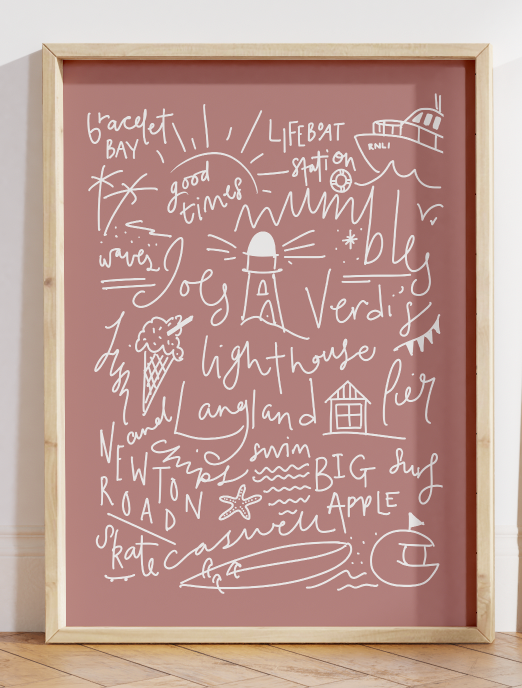 bracelet
BAY
LIFEBOAT
station
RNLI
good
times
mumbles
waves
Joes
Verdi's
lighthouse
Langland
Pier
and
chips
NEWTON
ROAD
swim
BIG
APPLE
surf
Skate
caswell